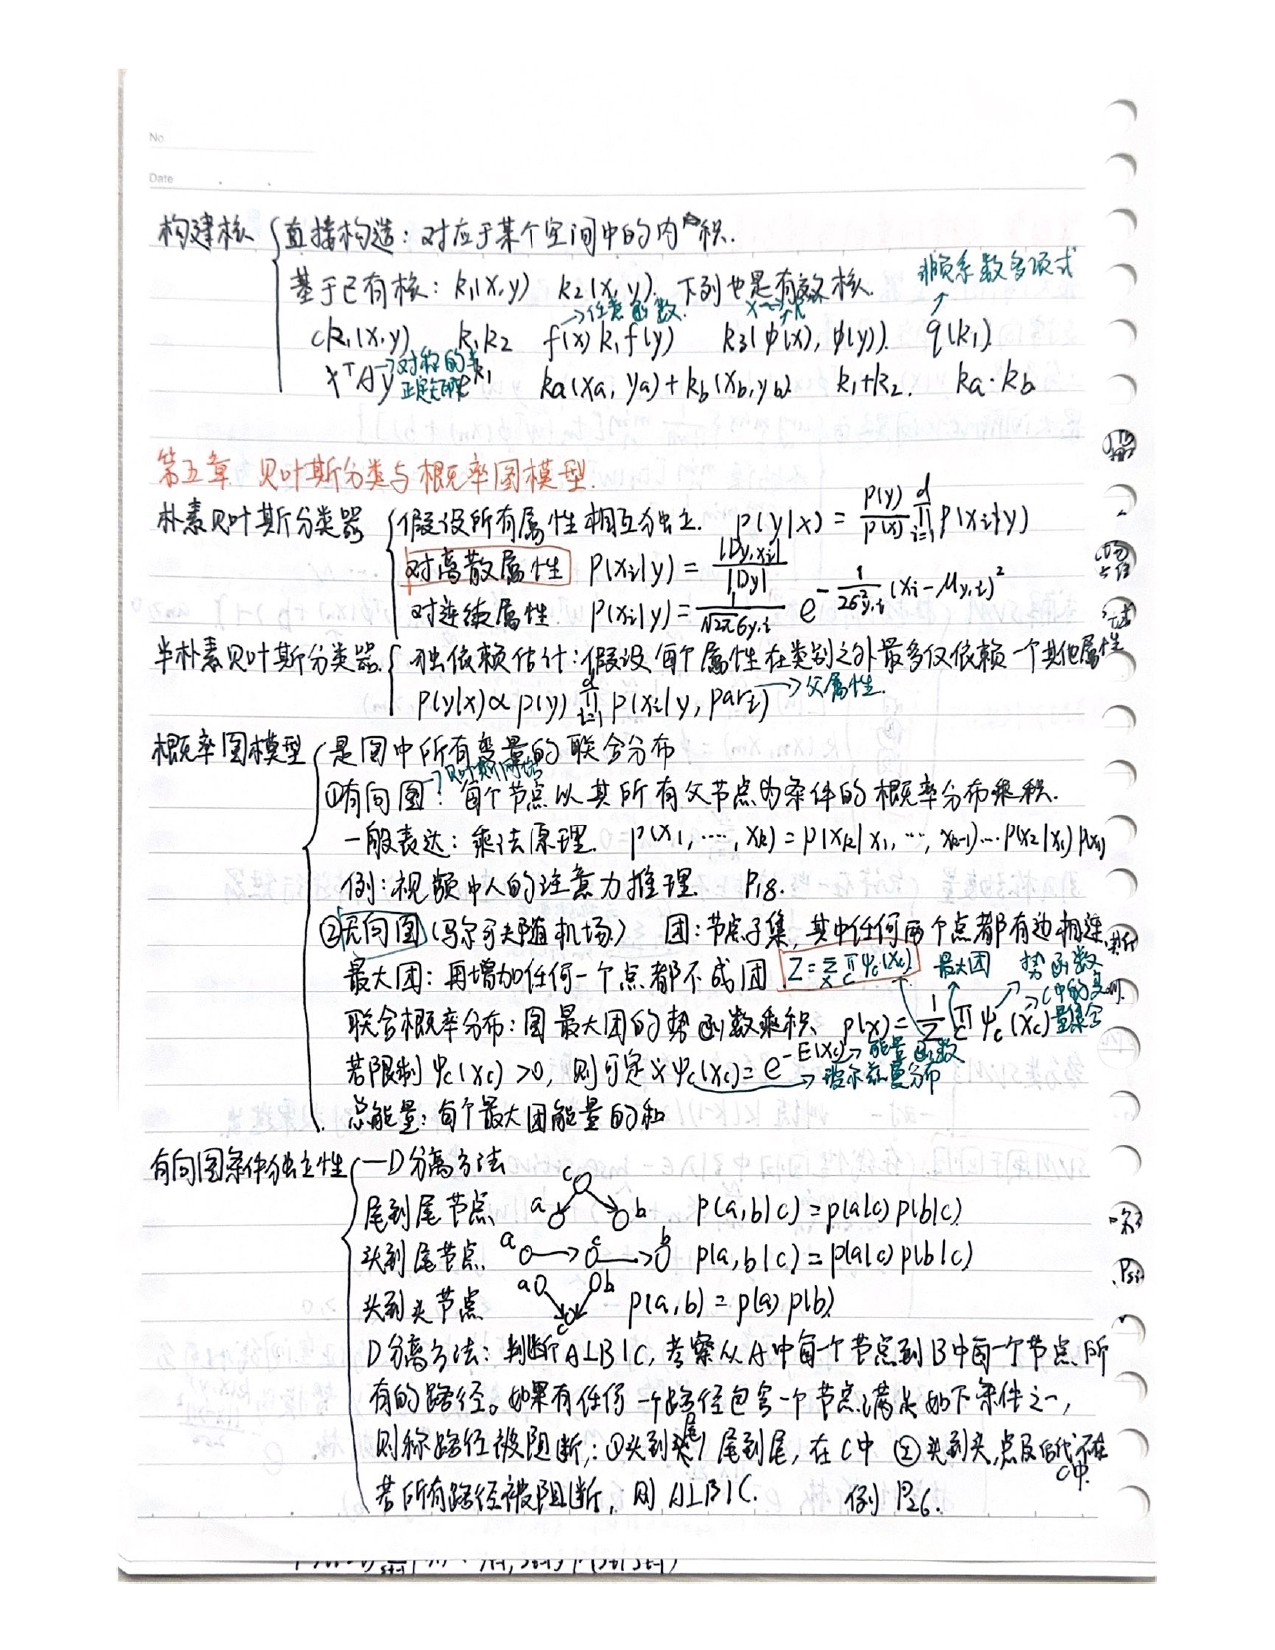 No
Date
构建核 直接构造：对应于某个空间中的内积.
非负系数多项式
基于已有核：k₁(x,y) k₂(x,y) 下列也是有效核.
→任意函数.
ck₁(x,y) k₁k₂ f(x)k₁f(y) k₃(φ(x),φ(y)) q(k₁)
→对称的半正定矩阵
xᵀAy e^k₁ ka(xa,ya)+kb(xb,yb) k₁+k₂. ka·kb
第五章 贝叶斯分类与概率图模型.
朴素贝叶斯分类器 假设所有属性相互独立. p(y|x) = p(y)/p(x) ∏_{i=1}^{d} p(xi|y)
对离散属性 p(xi|y) = |Dy,xi|/|Dy|
对连续属性 p(xi|y) = 1/(√2π σy,i) e^{-1/(2σ²y,i) (xi-μy,i)²}
半朴素贝叶斯分类器 独依赖估计：假设每个属性在类别之外最多仅依赖一个其他属性
p(y|x)∝p(y) ∏_{i=1}^{d} p(xi|y, pari) →父属性.
概率图模型 是图中所有变量的联合分布
→贝叶斯网络
①有向图：每个节点以其所有父节点为条件的概率分布乘积.
一般表达：乘法原理. p(x₁,…,xk) = p(xk|x₁,…,xk-1)…p(x₂|x₁)p(x₁)
例：视频中人的注意力推理. P18.
②无向图(马尔可夫随机场) 团：节点子集,其中任何两个点都有边相连.
最大团：再增加任何一个点都不成团 Z=Σ_x ∏_c ψc(xc) 最大团 势函数
→C中的变量集合
联合概率分布：图最大团的势函数乘积 p(x)=1/Z ∏_c ψc(xc)
若限制ψc(xc)>0, 则可定义ψc(xc)=e^{-E(xc)} →能量函数
→玻尔兹曼分布
总能量：每个最大团能量的和
有向图条件独立性 —D分离方法
尾到尾节点 a c b p(a,b|c)=p(a|c)p(b|c)
头到尾节点 a c b p(a,b|c)=p(a|c)p(b|c)
头到头节点 a b c p(a,b)=p(a)p(b)
D分离方法：判断A⊥B|C, 考察从A中每个节点到B中每一个节点所
有的路径。如果有任何一个路径包含一个节点满足如下条件之一,
则称路径被阻断：①头到尾/尾到尾, 在C中 ②头到头,点及后代不在C中.
若所有路径被阻断, 则A⊥B|C. 例P26.